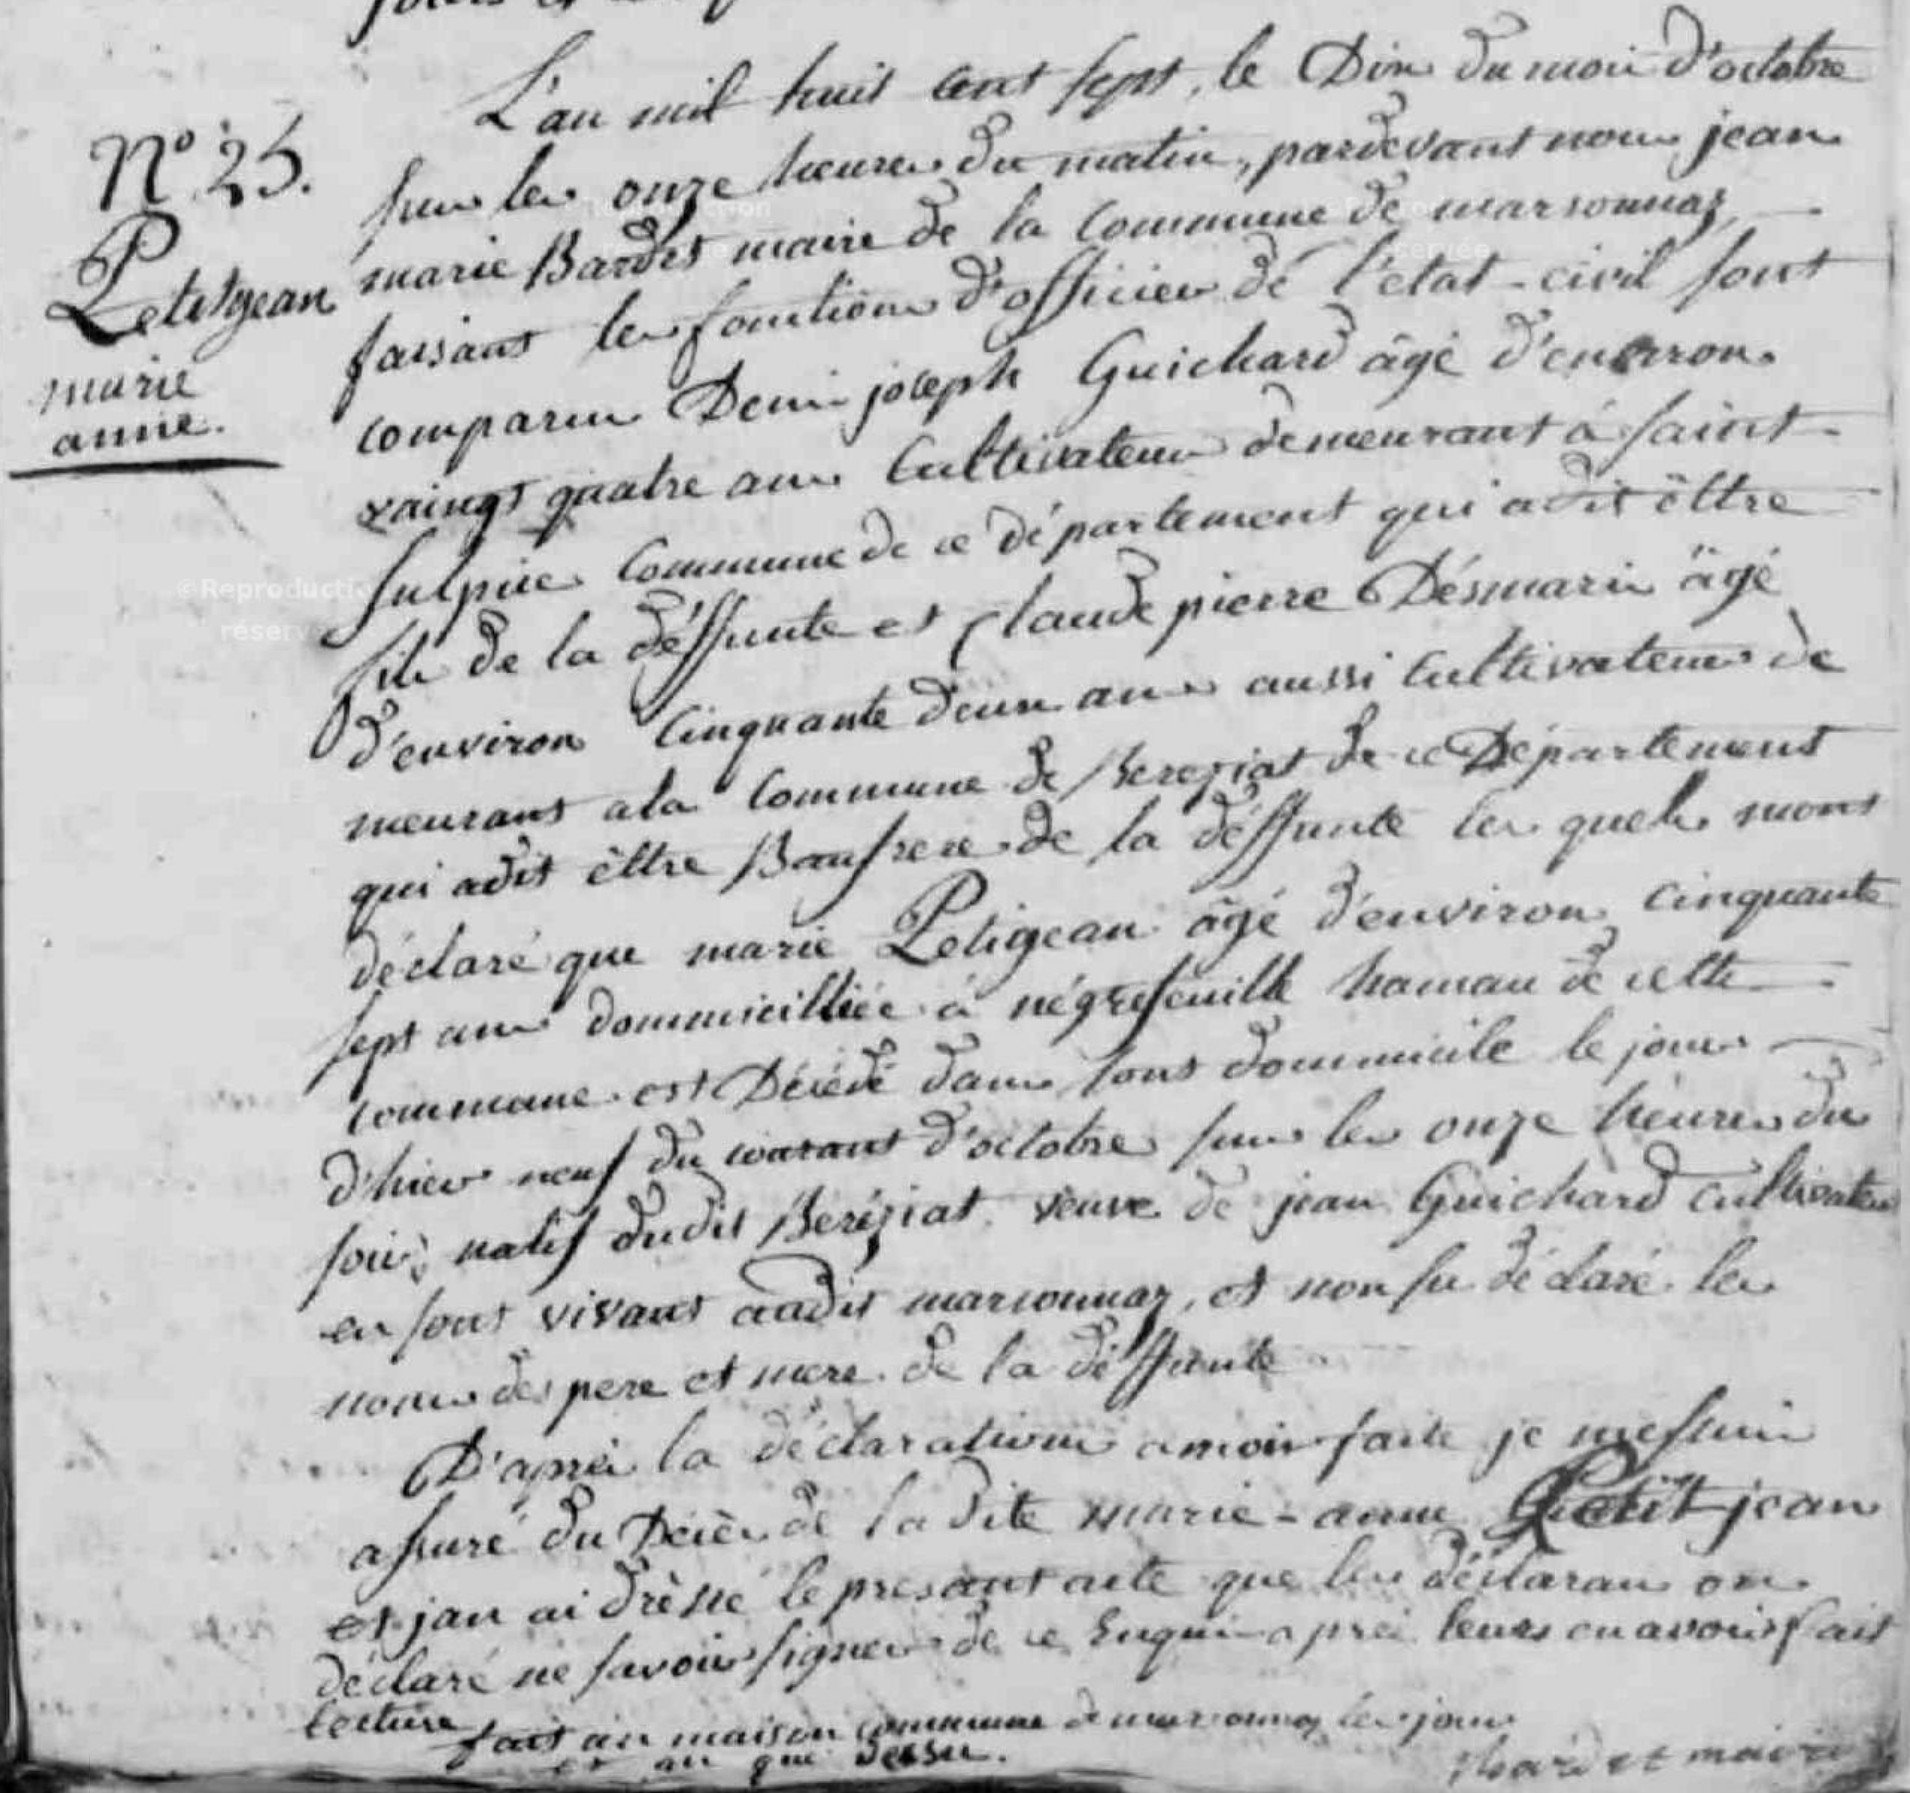 N° 25.
Petitjean
marie
anne.
L'an mil huit cent sept, le Dix du mois d'octobre
sur les onze heures du matin, pardevant nous jean
marie Bardet maire de la Commune de marsonnaz
faisant les fonctions d'officier dé l'etat-civil sont
comparus Denis joseph Guichard âgé d'environ
vaingt quatre ans Cultivateur demeurant à saint
sulpice Commune de ce département qui adit êttre
fils de la déffunte et Claude pierre Désmaris âgé
d'environ Cinquante deux ans aussi Cultivateur de
meurant ala Commune de Bereziat de ce Département
qui adit êttre Baufrere de la déffunte les quels mont
déclaré que marie Petigean âgé d'environ Cinquante
sept ans dommicilliée à négrefeuille hamau de cette
commune est Décédé dans sont dommicile le jour
d'hier neuf du courant d'octobre sur les onze heures du
soir, natif dudit Beréziat veuve de jean Guichard Cultivateur
en sont vivant audit marsonnaz, et non su déclaré les
noms des pere et mere de la déffunte
D'après la déclarations amoir faite je mesuis
assuré du Décès de ladite marie-anne Petit jean
et jan ai drèssé le present acte que les déclarans on
déclaré ne savoir signer de ce Enquis après leurs en avoir fait
lecture fait an maison commune de marsonnaz les jour
et an que dessu.
Bardet maire